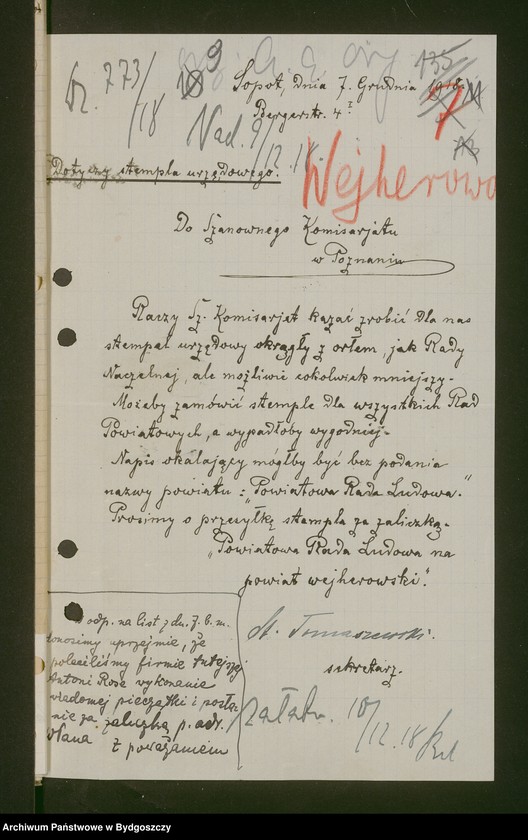 773/18
9
Sopot, dnia 7. Grudnia 1918
Bergerstr. 4 I
Nad. 9/12.18.
Wejherowo
Dotyczy stempla urzędowego.
Do Szanownego Komisarjatu
w Poznaniu
Raczy Sz. Komisarjat kazać zrobić dla nas
stempel urzędowy okrągły z orłem, jak Rady
Naczelnej, ale możliwie cokolwiek mniejszy.
Możeby zamówić stemple dla wszystkich Rad
Powiatowych, a wypadłoby wygodniej.
Napis okalający mógłby być bez podania
nazwy powiatu: „Powiatowa Rada Ludowa."
Prosimy o przesyłkę stempla za zaliczką.
„Powiatowa Rada Ludowa na
powiat wejherowski".
St. Tomaszewski.
sekretarz.
odp. na list z dn. 7. b. m.
donosimy uprzejmie, że
poleciliśmy firmie tutejszej
Antoni Rose wykonanie
wiadomej pieczątki i posła-
nie za zaliczką p. adr.
Pana
z poważaniem
załatw. 10/12.18
Archiwum Państwowe w Bydgoszczy